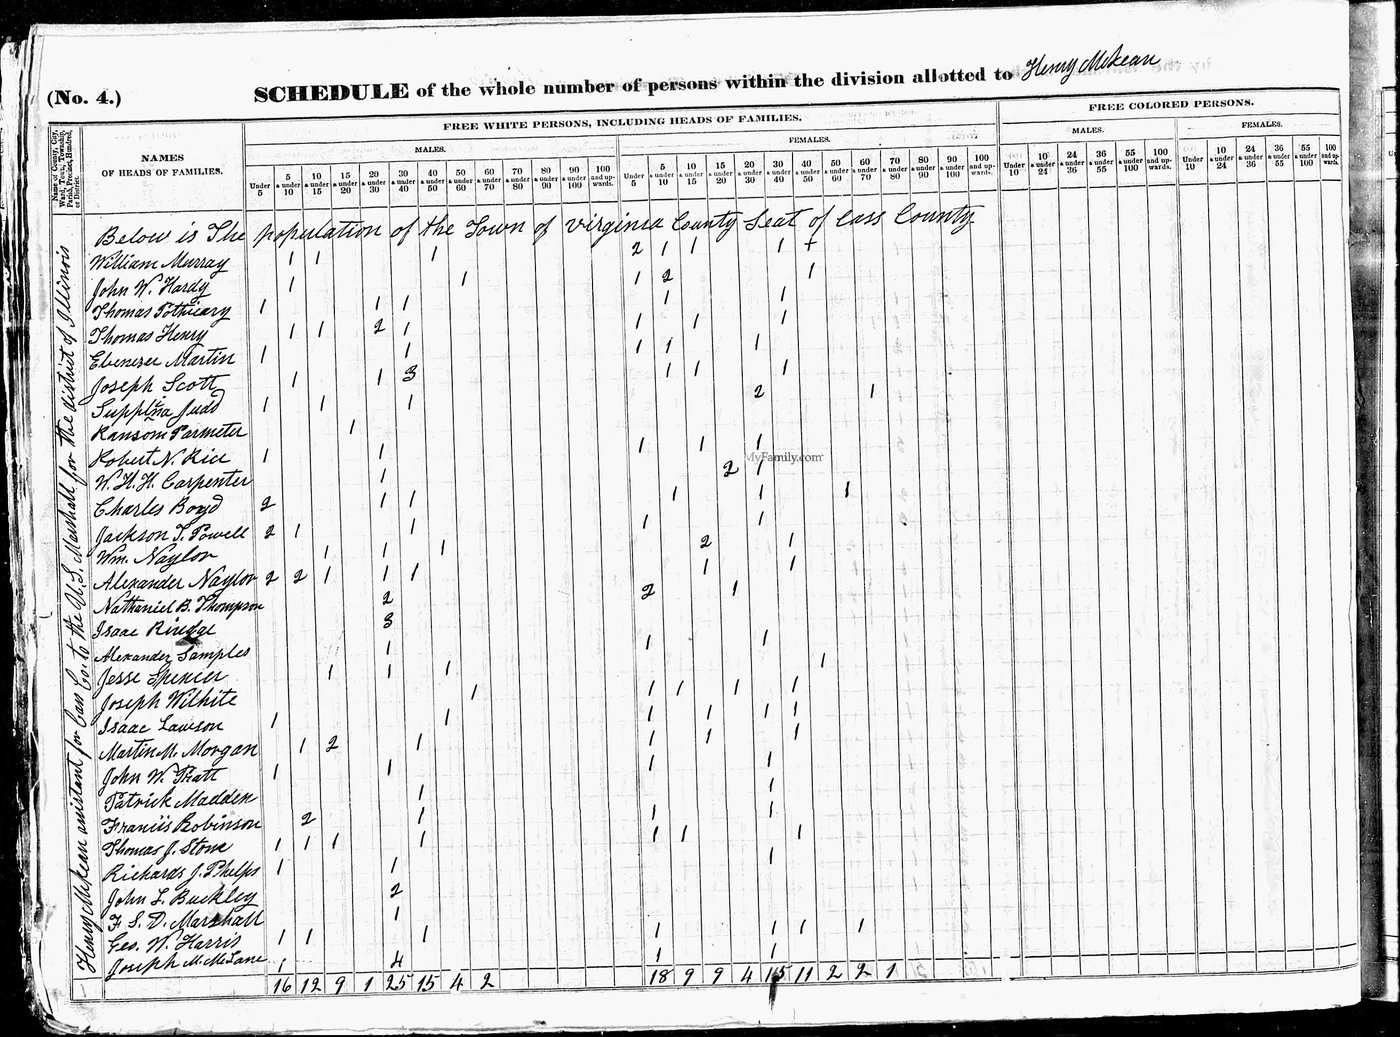 (No. 4.) SCHEDULE of the whole number of persons within the division allotted to Henry McKean
Name of County, City, Ward, Town, Township, Parish, Precinct, Hundred, or District.
NAMES
OF HEADS OF FAMILIES.
FREE WHITE PERSONS, INCLUDING HEADS OF FAMILIES.
FREE COLORED PERSONS.
MALES. FEMALES. MALES. FEMALES.
Under 5 5 & under 10 10 & under 15 15 & under 20 20 & under 30 30 & under 40 40 & under 50 50 & under 60 60 & under 70 70 & under 80 80 & under 90 90 & under 100 100 and upwards.
Under 5 5 & under 10 10 & under 15 15 & under 20 20 & under 30 30 & under 40 40 & under 50 50 & under 60 60 & under 70 70 & under 80 80 & under 90 90 & under 100 100 and upwards.
Under 10 10 & under 24 24 & under 36 36 & under 55 55 & under 100 100 and upwards.
Under 10 10 & under 24 24 & under 36 36 & under 55 55 & under 100 100 and upwards.
Henry McKean assistant for Cass Co. to the U.S. Marshall for the district of Illinois
Below is The population of the Town of Virginia County Seat of Cass County
William Murray 1 1 1 2 1 1 1 +
John W. Hardy 1 1 1 2 1
Thomas Pothicary 1 1 1 1 1
Thomas Henry 1 1 2 1 1 1 1
Ebenezer Martin 1 1 1 1 1
Joseph Scott 1 1 3 1 1 1
Judd 1 1 1 2 1
Ransom Parmeter 1
Robert N. Rice 1 1 1 1 1
W. H. H. Carpenter 1 2 1
Charles Boyd 2 1 1 1 1 1
Jackson T. Powell 2 1 1 1 1
Wm. Naylor 1 1 1 2 1
Alexander Naylor 2 2 1 1 1 1 1
Nathaniel B. Thompson 2 2 1
Isaac Rindge 3
Alexander Samples 1 1 1
Jesse Spencer 1 1 1 1
Joseph Wilhite 1 1 1 1 1
Isaac Lawson 1 1 1 1 1 1
Martin M. Morgan 1 2 1 1 1 1
John W. Pratt 1 1 1 1
Patrick Madden 1 1
Francis Robinson 2 1 1 1
Thomas J. Stone 1 1 1 1 1 1 1
Richards J. Phelps 1 1 1
John L. Buckley 2
F S. D. Marshall 1
Geo. W. Harris 1 1 1 1 1 1 1
Joseph M. McLane 1 4 1 1
16 12 9 1 25 15 4 2 18 9 9 4 15 11 2 2 1
MyFamily.com